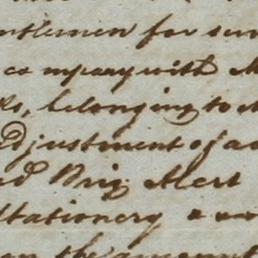 ntlemen for
company with M
belonging to
adjustment of a
Brig Alert
Stationery
the amount